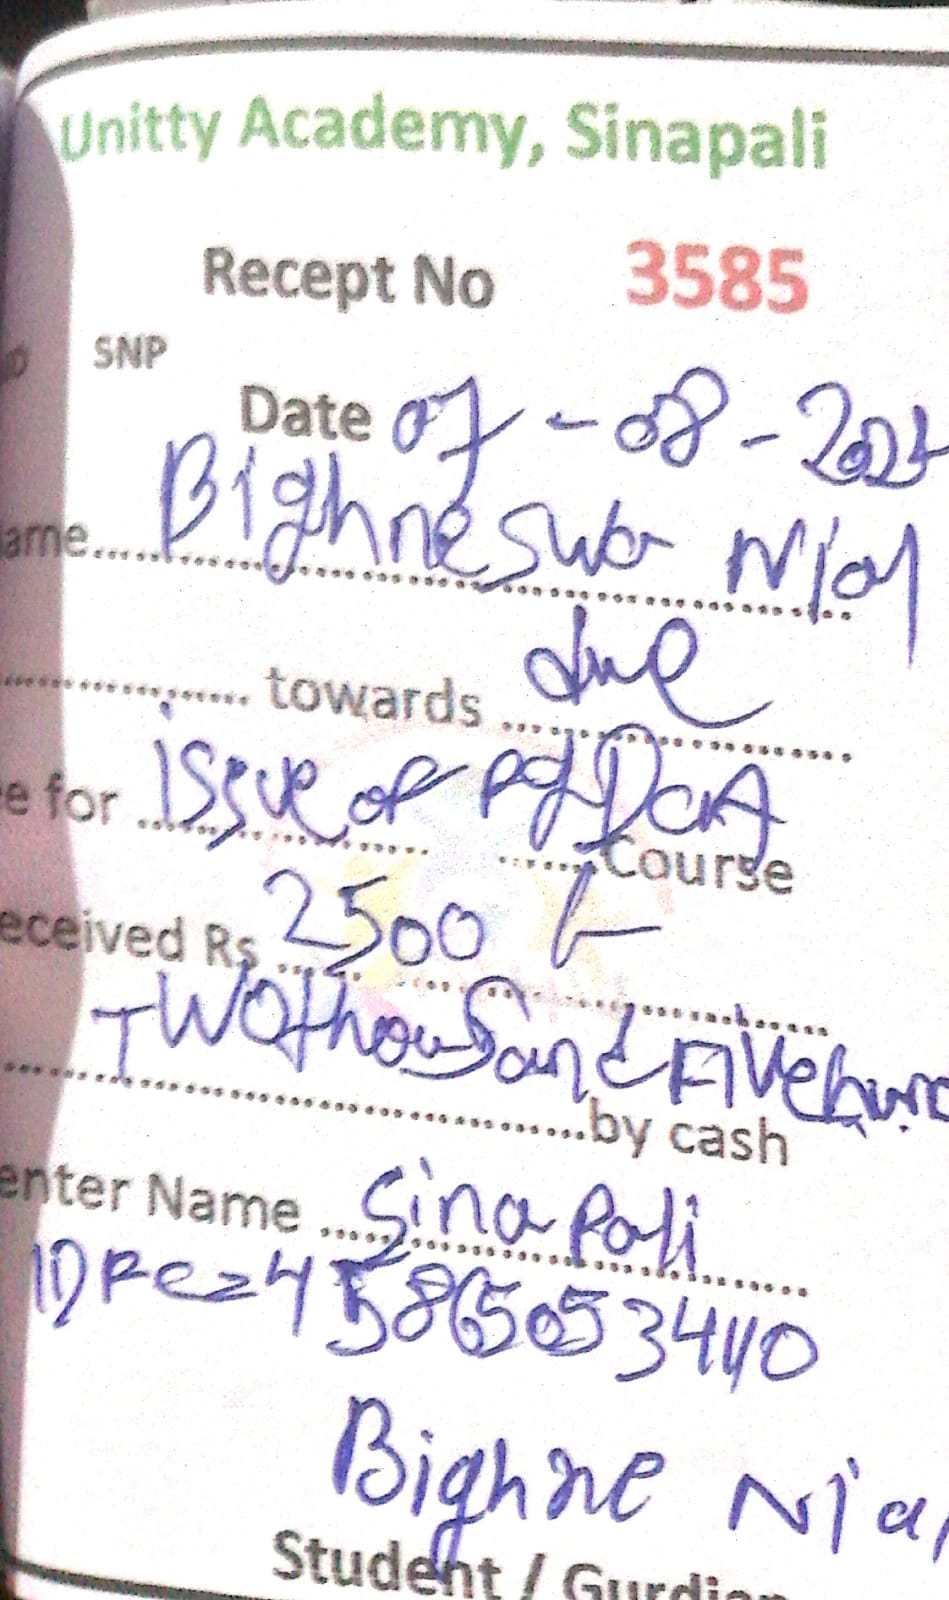 Unitty Academy, Sinapali
Recept No 3585
SNP
Date 07-08-202
ame.... Bighneswa Nial
.... towards .... due
e for .... issue of PgDCA .... Course
eceived Rs .... 2500/-
Two thousand Five hun
....by cash
enter Name .... Sinapali
4586505344
Bighne Nia
Student / Gurdian